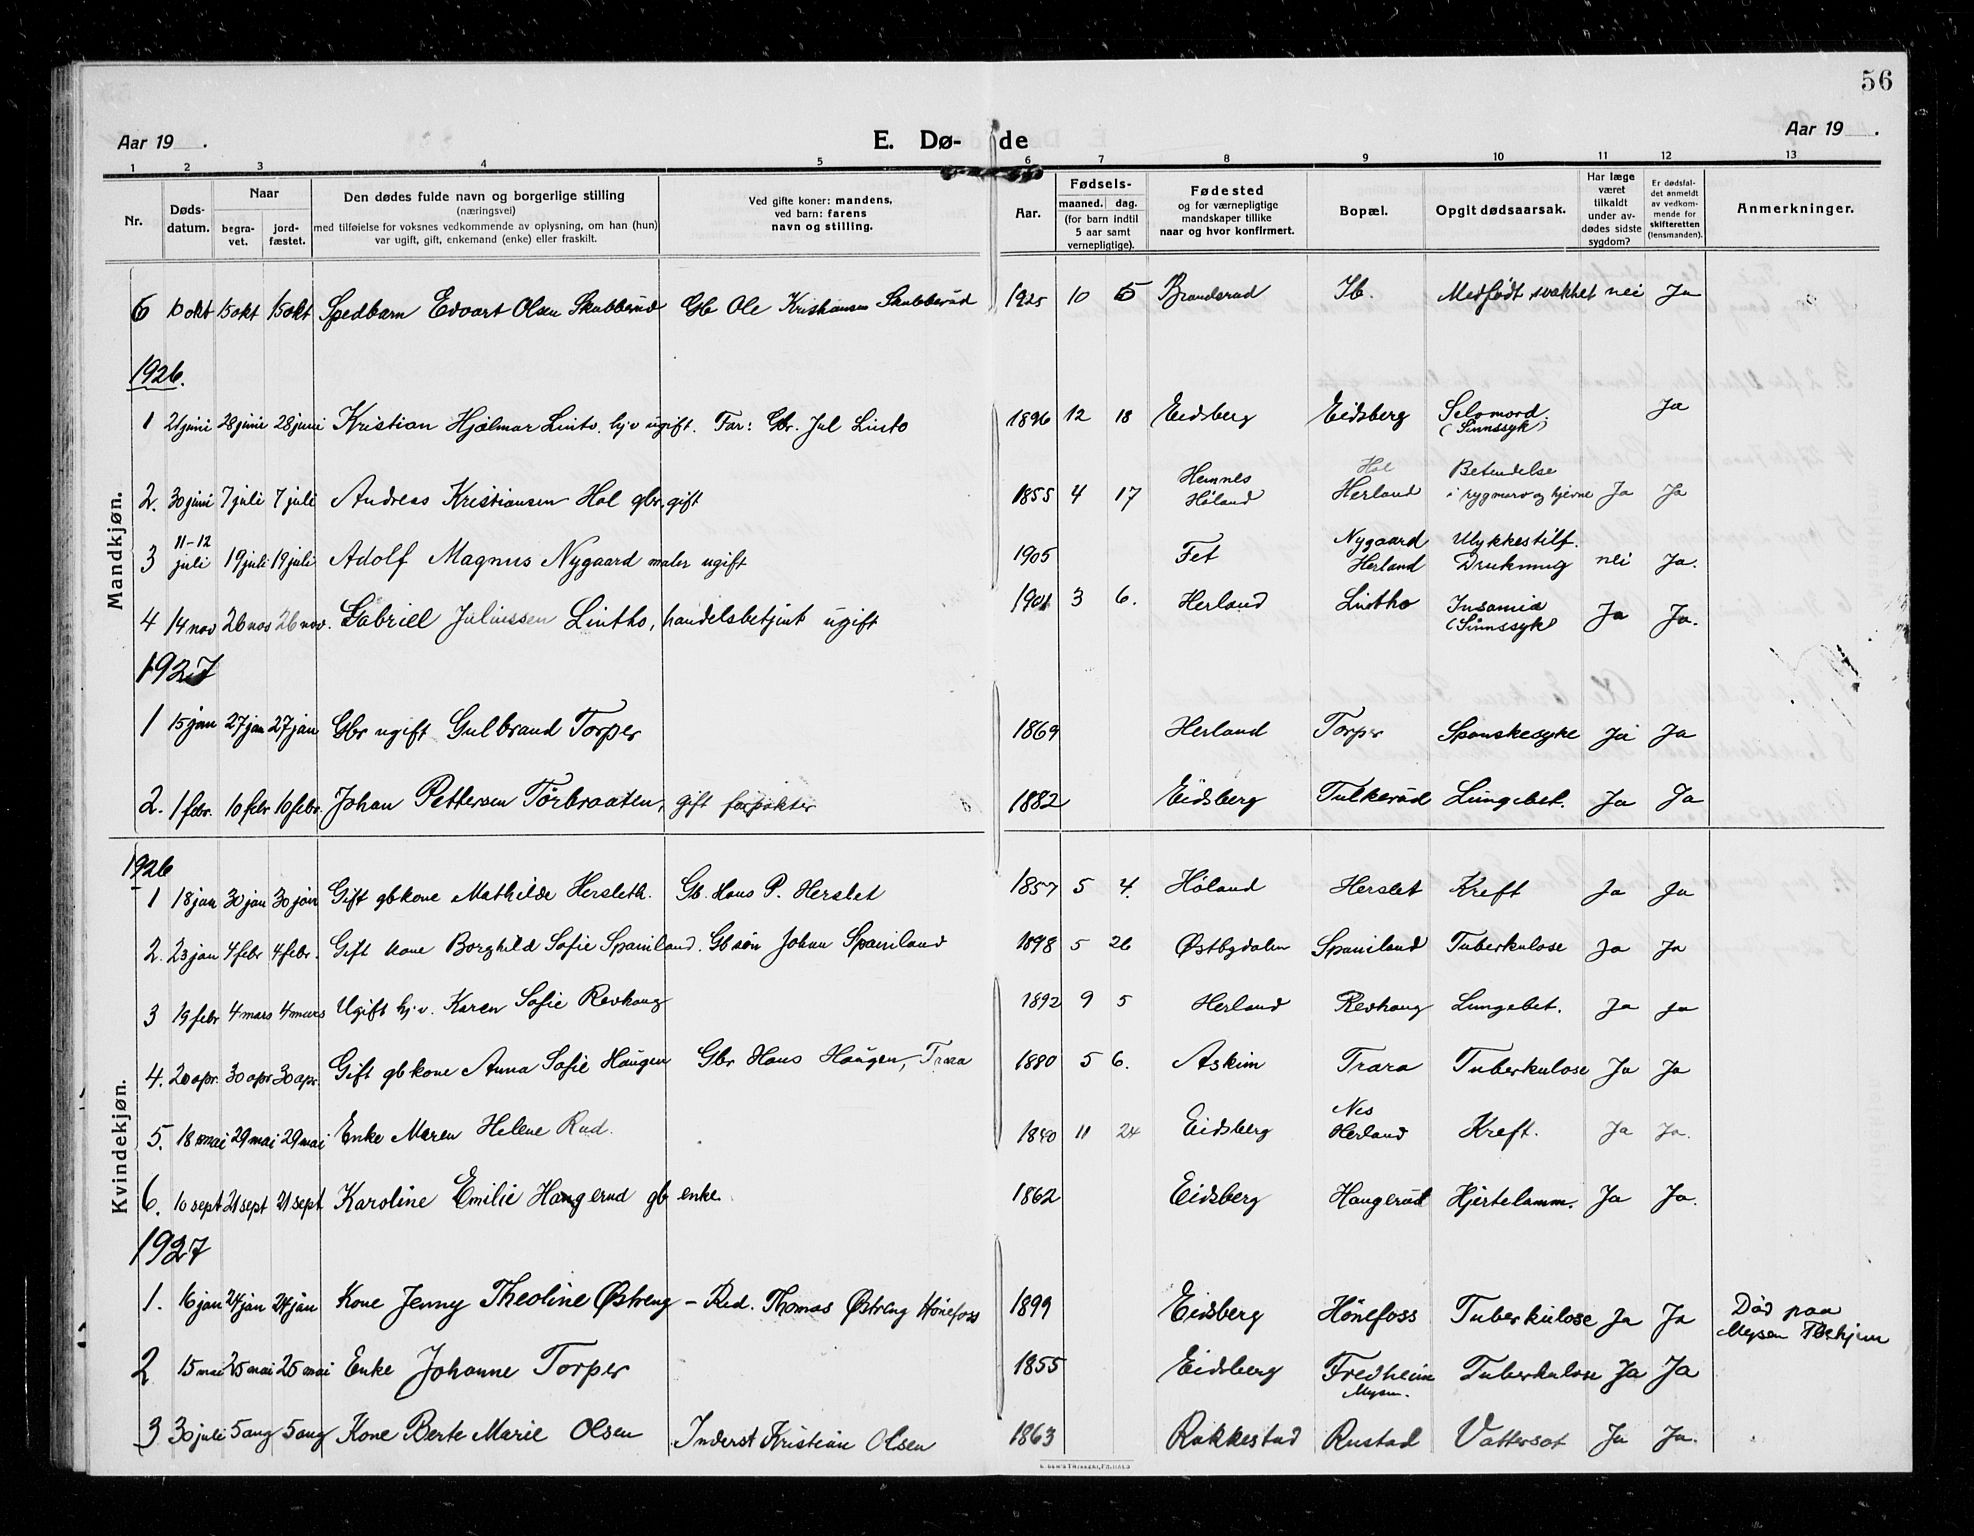 56
Aar 19 . E. Dø- de Aar 19 .
1 2 3 4 5 6 7 8 9 10 11 12 13
Nr. Døds-datum. Naar begra-vet. jord-fæstet. Den dødes fulde navn og borgerlige stilling (næringsvei) med tilføielse for voksnes vedkommende av oplysning, om han (hun) var ugift, gift, enkemand (enke) eller fraskilt. Ved gifte koner: mandens, ved barn: farens navn og stilling. Aar. Fødsels- maaned. dag. (for barn indtil 5 aar samt vernepligtige). Fødested og for værnepligtige mandskaper tillike naar og hvor konfirmert. Bopæl. Opgit dødsaarsak. Har læge været tilkaldt under av-dødes sidste sygdom? Er dødsfal-det anmeldt av vedkom-mende for skifteretten (lensmanden). Anmerkninger.
Mandkjøn.
6 10 okt 15 okt 15 okt Spedbarn Edvart Olsen Skubberud Gb Ole Kristiansen Skubberud 1925 10 5 Branderud Ib. Medfødt svakhet nei Ja
1926.
1 21 juni 28 juni 28 juni Kristian Hjalmar Linto. hj.v ugift. Far: Gbr. Jul Linto 1896 12 18 Eidsberg Eidsberg Selvmord. (Sinnssyk) Ja
2. 30 juni 7 juli 7 juli Andreas Kristiansen Hol gbr. gift 1855 4 17 Hemnes Høland Hol Herland Betendelse i rygmarv og hjerne Ja Ja
3 11-12 juli 19 juli 19 juli Adolf Magnus Nygaard maler ugift 1905 Fet Nygaard Herland Ulykkestilf. Drukning nei Ja.
4 14 nov 26 nov 26 nov. Gabriel Juliussen Lintho, handelsbetjent ugift 1901 3 6. Herland Lintho Insania (Sinnssyk) Ja Ja.
1927
1 15 jan 27 jan 27 jan Gbr ugift Gulbrand Torper 1869 Herland Torper Spanskesyke Ja Ja
2. 1 febr. 10 febr 10 febr. Johan Pettersen Torbraaten, gift forpakter 1882 Eidsberg Tulkerud Lungebet. Ja Ja
Kvindekjøn.
1926
1 18 jan 30 jan 30 jan Gift gbkone Mathilde Hersleth. Gb. Hans P. Herslet 1857 5 4. Høland Herslet Kreft Ja Ja
2. 23 jan 4 febr 4 febr. Gift kone Borghild Sofie Spaniland. Gbsøn Johan Spaniland 1898 5 26 Østbydalen Spaniland Tuberkulose Ja Ja
3 19 febr 4 mars 4 mars Ugift hj.v. Karen Sofie Revhaug 1892 9 5 Herland Revhaug Lungebet. Ja Ja
4. 20 apr. 30 apr 30 apr. Gift gbkone Anna Sofie Haugen Gbr Hans Haugen, Trara 1880 5 6. Askim Trara Tuberkulose Ja Ja
5. 18 mai 29 mai 29 mai Enke Maren Helene Rud. 1840 11 24 Eidsberg Nes Herland Kreft. Ja Ja.
6. 10 sept 21 sept 21 sept Karoline Emilie Haugerud gb enke. 1862 Eidsberg Haugerud Hjertelamm. Ja Ja.
1927
1. 16 jan 24 jan 24 jan Kone Jenny Theoline Østreng - Red. Thomas Østreng Hönefoss 1899 Eidsberg Hönefoss Tuberkulose Ja Ja Død paa Mysen Tbchjem
2 15 mai 25 mai 25 mai Enke Johanne Torper 1855 Eidsberg Fredheim Mysen. Tuberkulose Ja Ja
3 30 juli 5 aug 5 aug Kone Berte Marie Olsen Inderst Kristian Olsen 1863 Rakkestad Rustad Vattersot Ja Ja.